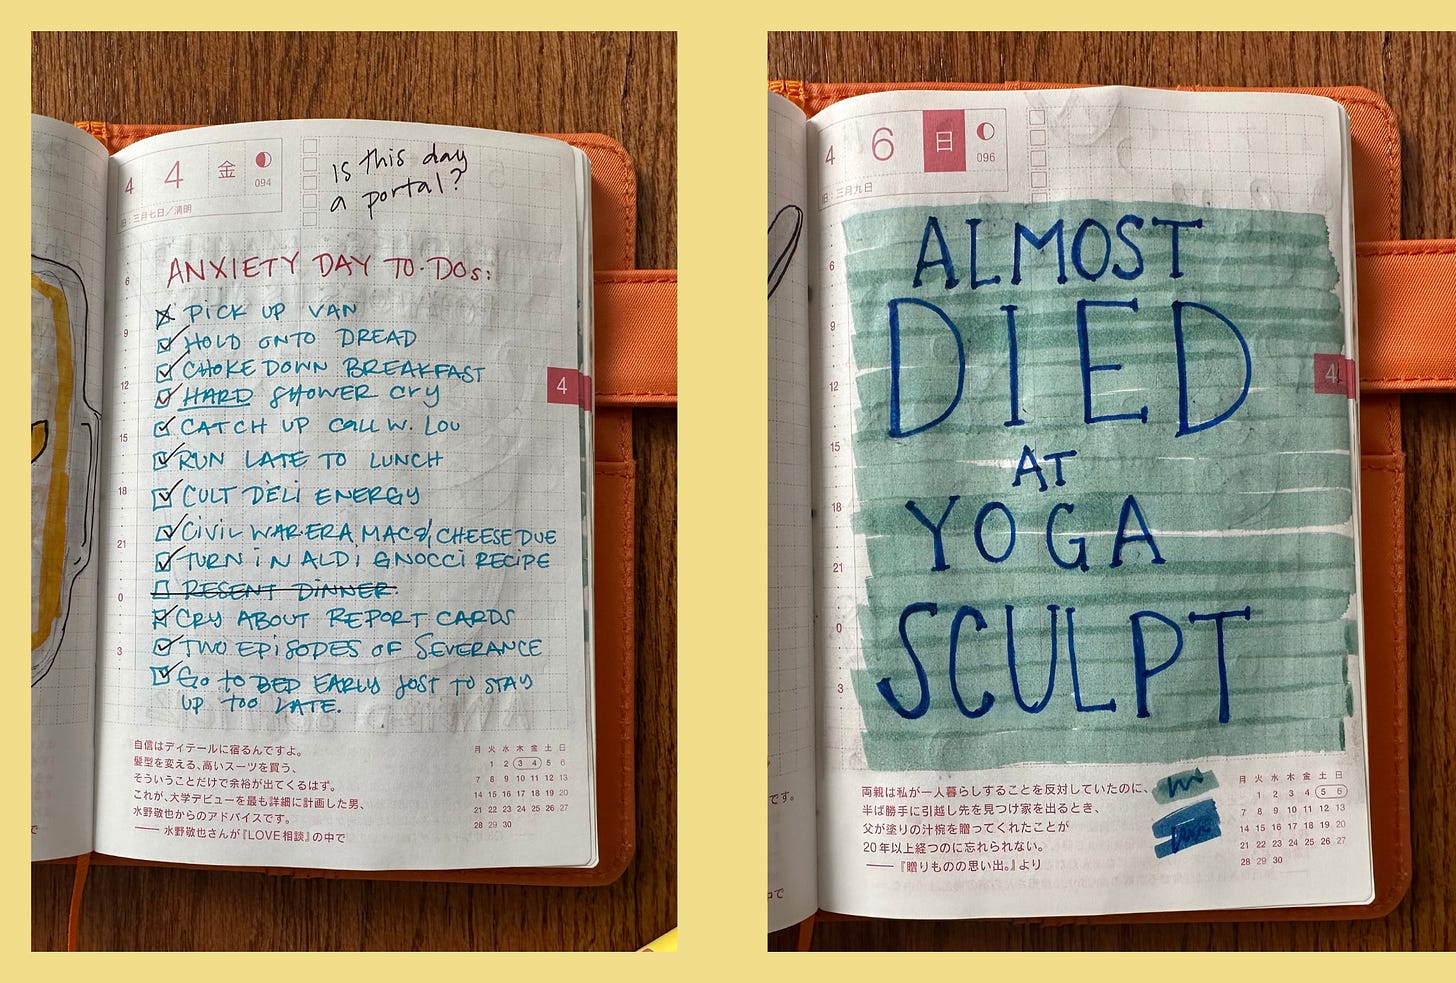 4 4 金
094
旧:三月七日/清明
is this day
a portal?
ANXIETY DAY TO-DOs:
PICK UP VAN
HOLD ONTO DREAD
CHOKE DOWN BREAKFAST
HARD SHOWER CRY
CATCH UP CALL W. LOU
RUN LATE TO LUNCH
CULT DELI ENERGY
CIVIL WAR ERA MAC & CHEESE DUE
TURN IN ALDI GNOCCI RECIPE
RESENT DINNER
CRY ABOUT REPORT CARDS
TWO EPISODES OF SEVERANCE
GO TO BED EARLY JUST TO STAY
UP TOO LATE.
6
9
12
15
18
21
0
3
4
自信はディテールに宿るんですよ。
髪型を変える、高いスーツを買う、
そういうことだけで余裕が出てくるはず。
これが、大学デビューを最も詳細に計画した男、
水野敬也からのアドバイスです。
── 水野敬也さんが『LOVE相談』の中で
月 火 水 木 金 土 日
1 2 3 4 5 6
7 8 9 10 11 12 13
14 15 16 17 18 19 20
21 22 23 24 25 26 27
28 29 30
で
4 6 日
096
旧:三月九日
ALMOST
DIED
AT
YOGA
SCULPT
6
9
12
15
18
21
0
3
4
です。
中で
両親は私が一人暮らしすることを反対していたのに、
半ば勝手に引越し先を見つけ家を出るとき、
父が塗りの汁椀を贈ってくれたことが
20年以上経つのに忘れられない。
──『贈りものの思い出。』より
月 火 水 木 金 土 日
1 2 3 4 5 6
7 8 9 10 11 12 13
14 15 16 17 18 19 20
21 22 23 24 25 26 27
28 29 30